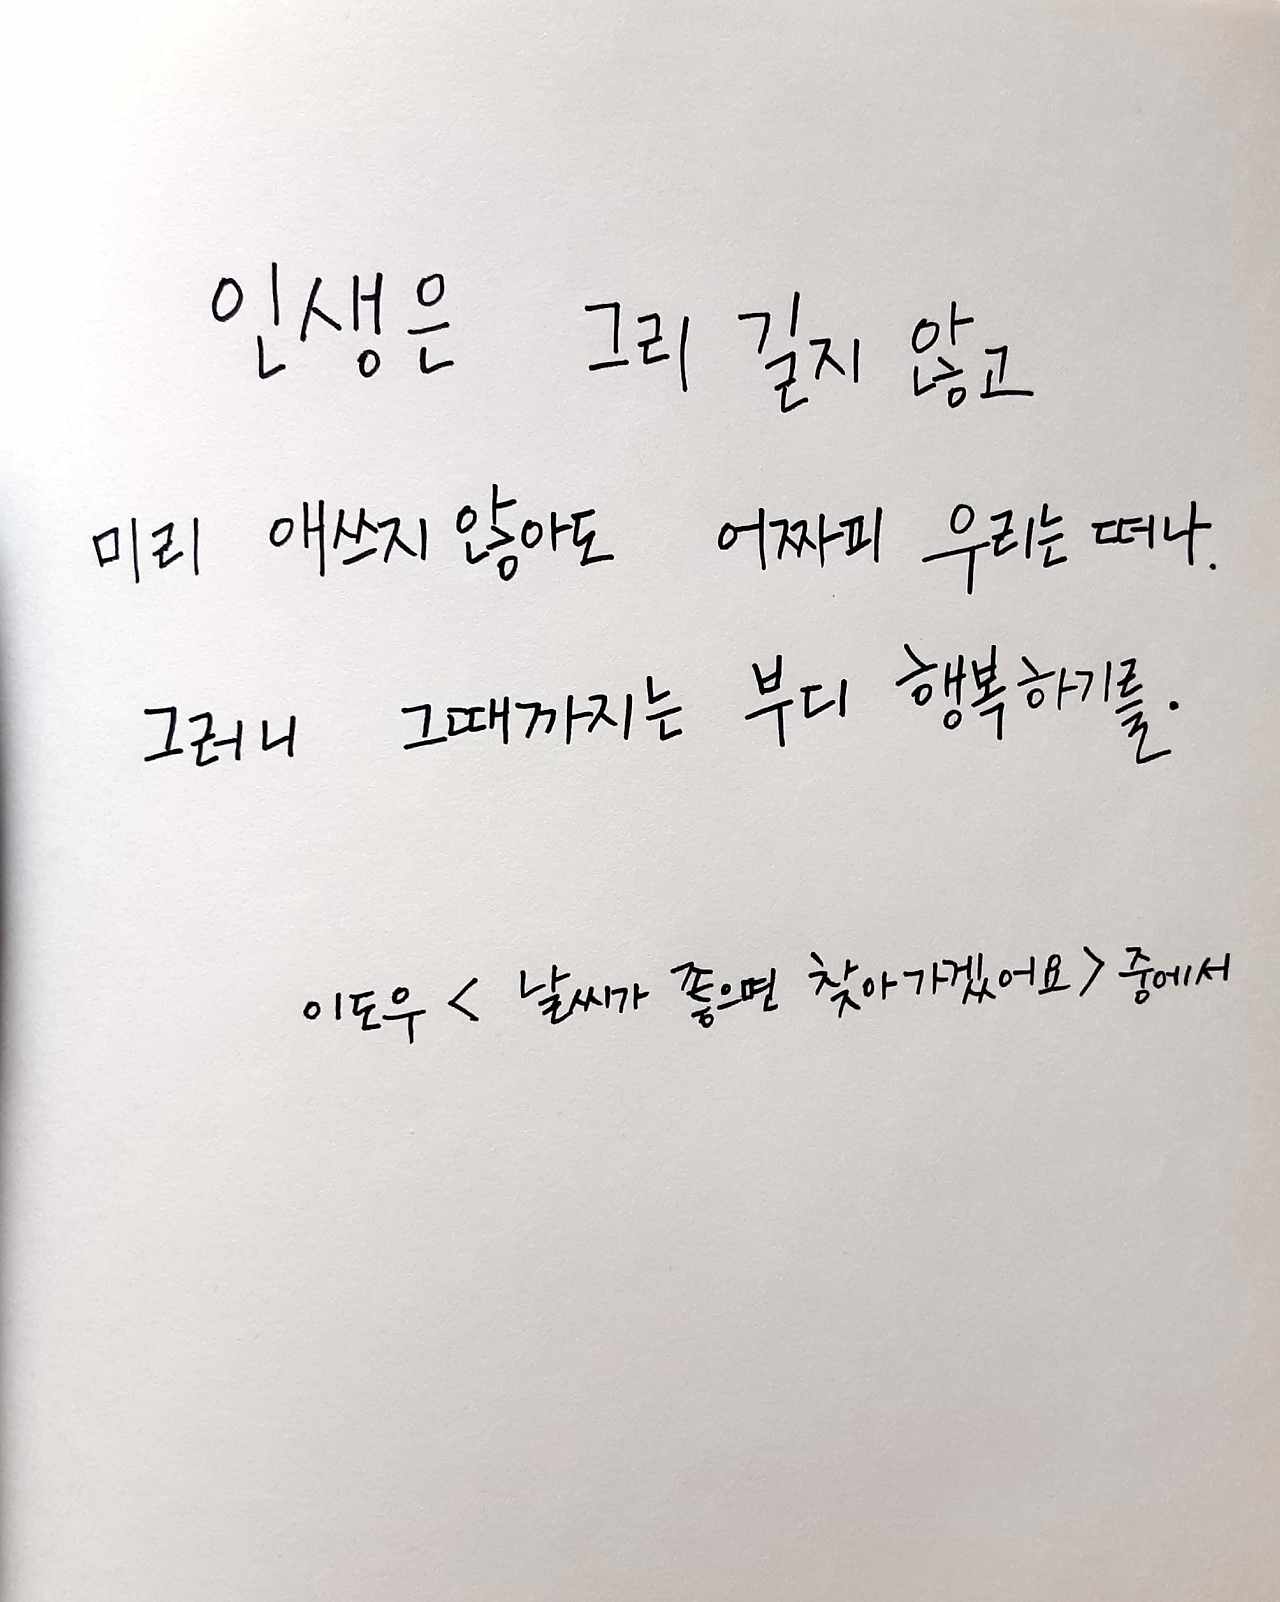 인생은 그리 길지 않고
미리 애쓰지 않아도 어짜피 우리는 떠나.
그러니 그때까지는 부디 행복하기를.
이도우 < 날씨가 좋으면 찾아가겠어요 > 중에서